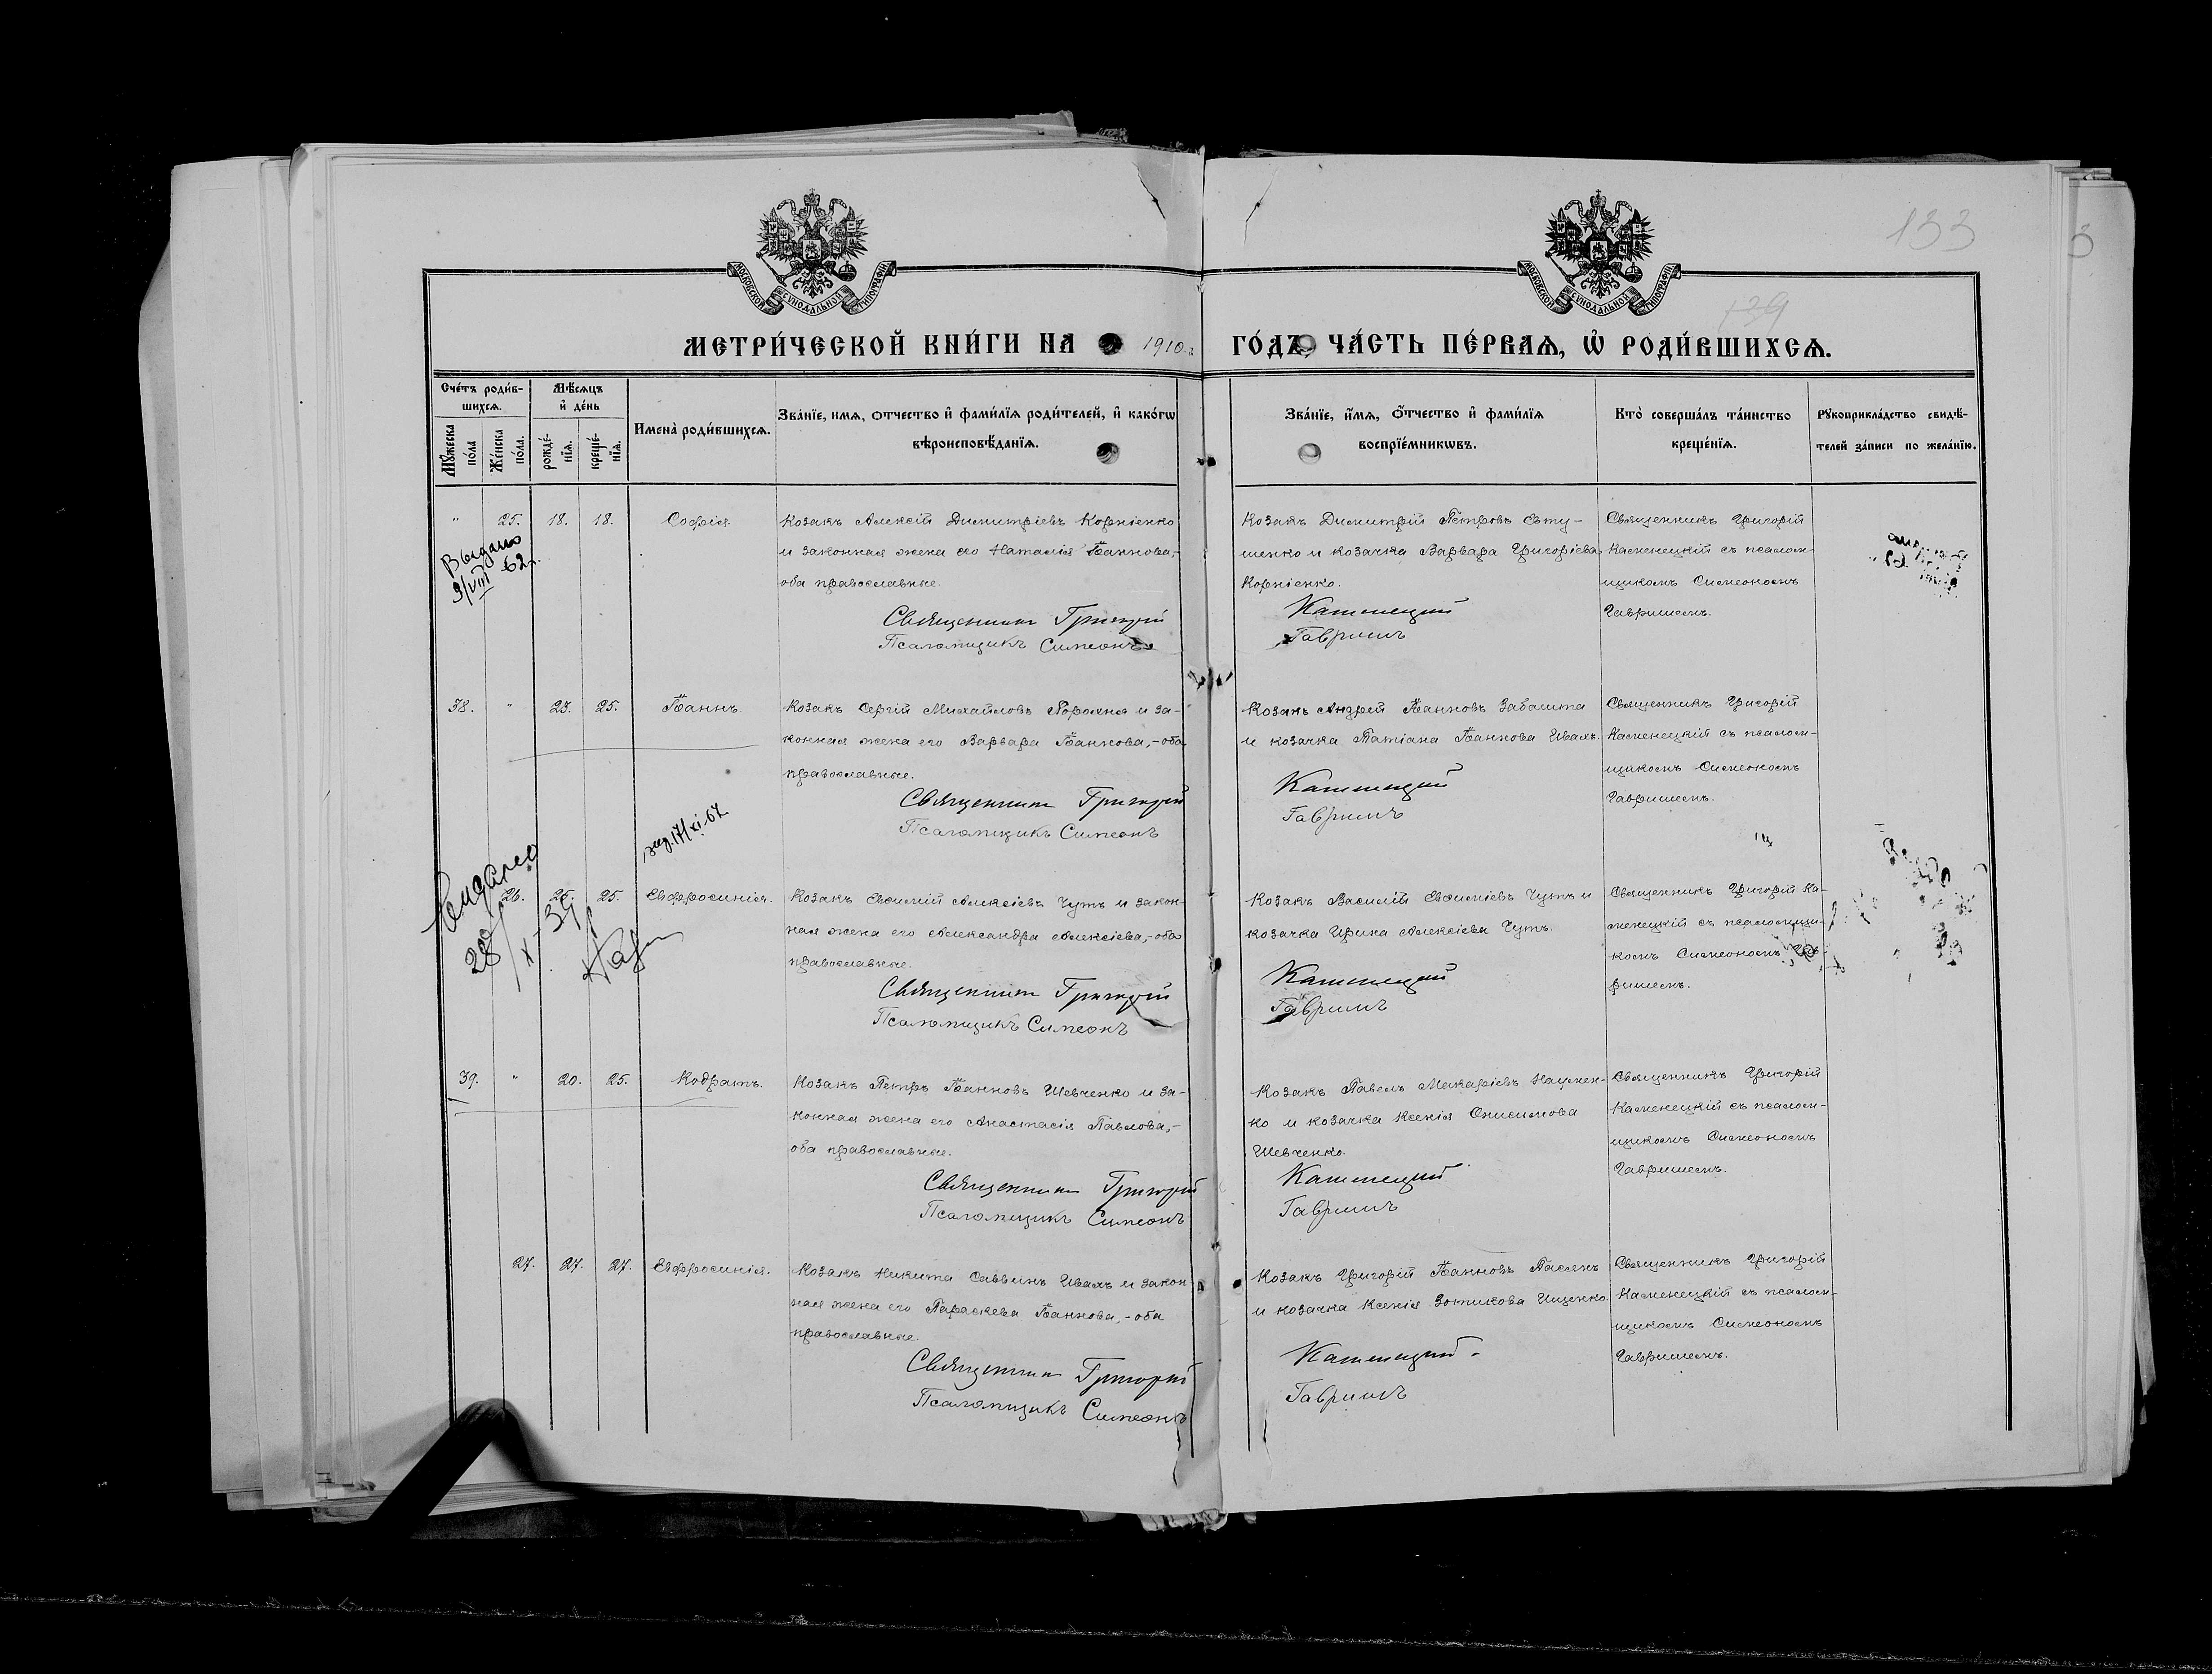 133
139
МОСКОВСКОЙ СУНОДАЛЬНОЙ ТИПОГРАФІИ
МОСКОВСКОЙ СУНОДАЛЬНОЙ ТИПОГРАФІИ
МЕТРИ́ЧЕСКОЙ КНИ́ГИ НА 1910 ГО́ДЪ, ЧА́СТЬ ПЕ́РВАѦ, Ѡ РОДИ́ВШИХСѦ.
Сче́тъ роди́в-
шихсѧ.
Мꙋ́жеска по́ла
Же́нска по́ла.
Мѣ́сѧцъ
и҆ де́нь
рожде́-
нїѧ.
креще́-
нїѧ.
Имена̀ роди́вшихсѧ.
Зва́нїе, имѧ, ѻтчество и҆ фами́лїѧ роди́телей, и҆ како́гѡ
вѣроисповѣ́данїѧ.
Зва́нїе, и҆мѧ, ѻ҆́тчество и҆ фами́лїѧ
воспрїе́мникѡвъ.
Кто̀ соверша́лъ та́инство
креще́нїѧ.
Рꙋкоприкла́дство свидѣ́-
телей за́писи по жела́нїю.
" 25. 18. 18. Софія.
Выдано
9/VIII 62г.
Козакъ Алексій Димитріевъ Корніенко
и законная жена его Наталія Іоаннова,-
оба православные.
Священникъ Григорій
Псаломщикъ Симеонъ
Козакъ Димитрій Петровъ Евту-
шенко и козачка Варвара Григоріева
Корніенко.
Каменецкій
Гавришъ
Священникъ Григорій
Каменецкій съ псалом-
щикомъ Симеономъ
Гавришемъ.
38. " 23. 25. Іоаннъ.
Козакъ Сергій Михайловъ Порохня и за-
конная жена его Варвара Іоаннова,-оба
православные.
Священникъ Григорій
Псаломщикъ Симеонъ
Козакъ Андрей Іоанновъ Забашта
и козачка Татіана Іоаннова Ивахъ.
Каменецкій
Гавришъ
Священникъ Григорій
Каменецкій съ псалом-
щикомъ Симеономъ
Гавришемъ.
17/XI-67
Видано
28/X-39
26. 25. 25. Евфросинія.
Козакъ Евфимій Алексіевъ Чутъ и закон-
ная жена его Александра Алексіева,-оба
православные.
Священникъ Григорій
Псаломщикъ Симеонъ
Козакъ Василій Евфиміевъ Чутъ и
козачка Ирина Алексіева Чутъ.
Каменецкій
Гавришъ
Священникъ Григорій Ка-
менецкій съ псаломщи-
комъ Симеономъ Гав-
ришемъ.
39. " 20. 25. Кодратъ.
Козакъ Петръ Іоанновъ Шевченко и за-
конная жена его Анастасія Павлова,-
оба православные.
Священникъ Григорій
Псаломщикъ Симеонъ
Козакъ Павелъ Макаріевъ Наумен-
ко и козачка Ксенія Онисимова
Шевченко.
Каменецкій
Гавришъ
Священникъ Григорій
Каменецкій съ псалом-
щикомъ Симеономъ
Гавришемъ.
27. 27. 27. Евфросинія.
Козакъ Никита Саввинъ Ивахъ и закон
ная жена его Параскева Іоаннова,-оба
православные.
Священникъ Григорій
Псаломщикъ Симеонъ
Козакъ Григорій Іоанновъ Пасекъ
и козачка Ксенія Зотикова Ищенко.
Каменецкій
Гавришъ
Священникъ Григорій
Каменецкій съ псалом-
щикомъ Симеономъ
Гавришемъ.